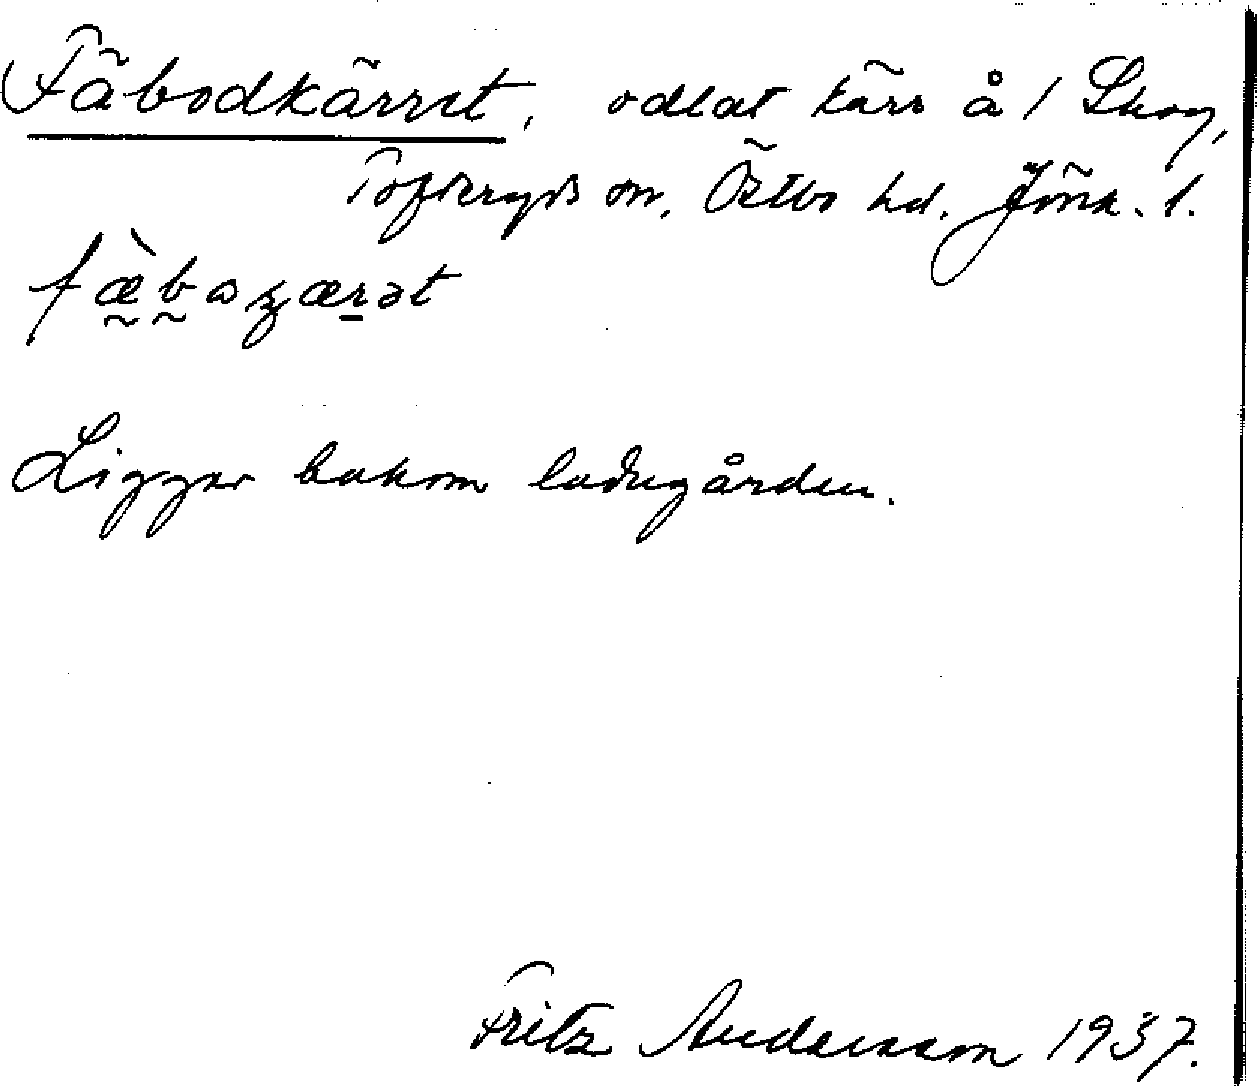 Fäbodkärret, odlat kärr å 1 Skog,
Tofteryds sn. Östbo hd. Jönk. l.
fæ̀bᴔʒærət
Ligger bakom ladugården.
Fritz Andersson 1937.